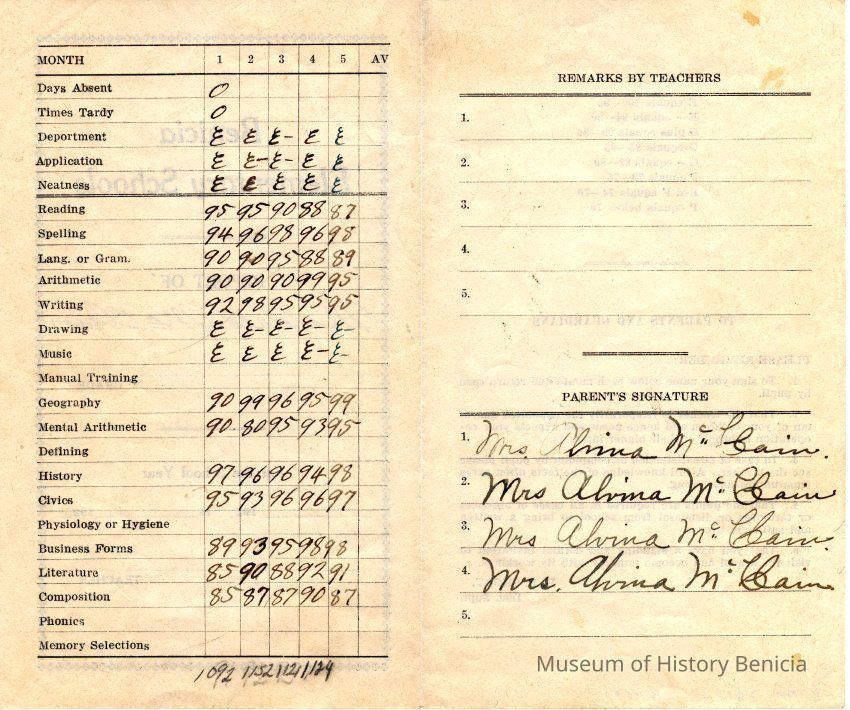 MONTH 1 2 3 4 5 AV
Days Absent 0
Times Tardy 0
Deportment E E E- E E
Application E E- E- E E
Neatness E E E E E
Reading 95 95 90 88 87
Spelling 94 96 98 96 98
Lang. or Gram. 90 90 95 88 89
Arithmetic 90 90 90 99 95
Writing 92 98 95 95 95
Drawing E E- E- E- E-
Music E E E E- E-
Manual Training
Geography 90 99 96 95 99
Mental Arithmetic 90 80 95 93 95
Defining
History 97 96 96 94 98
Civics 95 93 96 96 97
Physiology or Hygiene
Business Forms 89 93 95 98 98
Literature 85 90 88 92 91
Composition 85 87 87 90 87
Phonics
Memory Selections
1092 1152 1121 1124
REMARKS BY TEACHERS
1.
2.
3.
4.
5.
PARENT'S SIGNATURE
1. Mrs. Alvina McCain.
2. Mrs Alvina McCain
3. Mrs Alvina McCain.
4. Mrs. Alvina McCain
5.
Museum of History Benicia